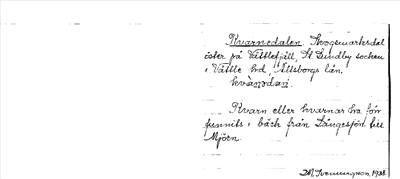 Kvarnedalen. Skogsmarksdel
öster på Vättlefjäll, St. Lundby socken
i Vättle hd, Älvsborgs län.
kvàɳədàn
Kvarn eller kvarnar ha förr
funnits i bäck från Långesjön till
Mjörn.
1938